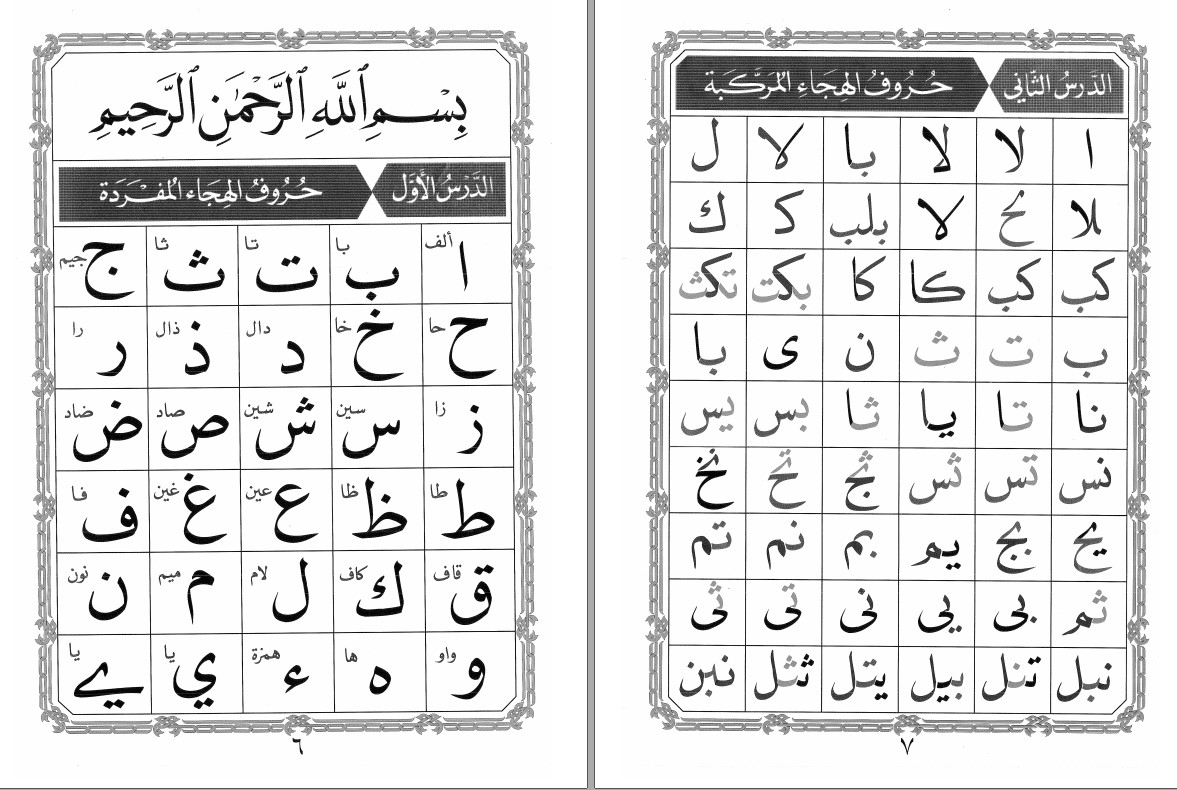 بِسْمِ ٱللَّهِ ٱلرَّحْمَٰنِ ٱلرَّحِيمِ
الدَّرْسُ الأَوَّل حُرُوفُ الهِجَاء المُفْرَدَة
ا ألف ب با ت تا ث ثا ج جيم
ح حا خ خا د دال ذ ذال ر را
ز زا س سين ش شين ص صاد ض ضاد
ط طا ظ ظا ع عين غ غين ف فا
ق قاف ك كاف ل لام م ميم ن نون
و واو ه ها ء همزة ي يا ے يا
٦
الدَّرسُ الثَّانِي حُرُوفُ الهِجَاءِ المُرَكَّبَة
ا لا لا با لا ل
ملا نح لا بلب ک ك
كب كب كا كا بكت تكث
ب ت ث ن ى با
نا تا يا ثا بس يس
نس تس ثس ثج تح نخ
يح بج يم بم نم تم
ثم بى يى نى تى ثى
نبل تنل بيل يتل ثثل نبن
٧